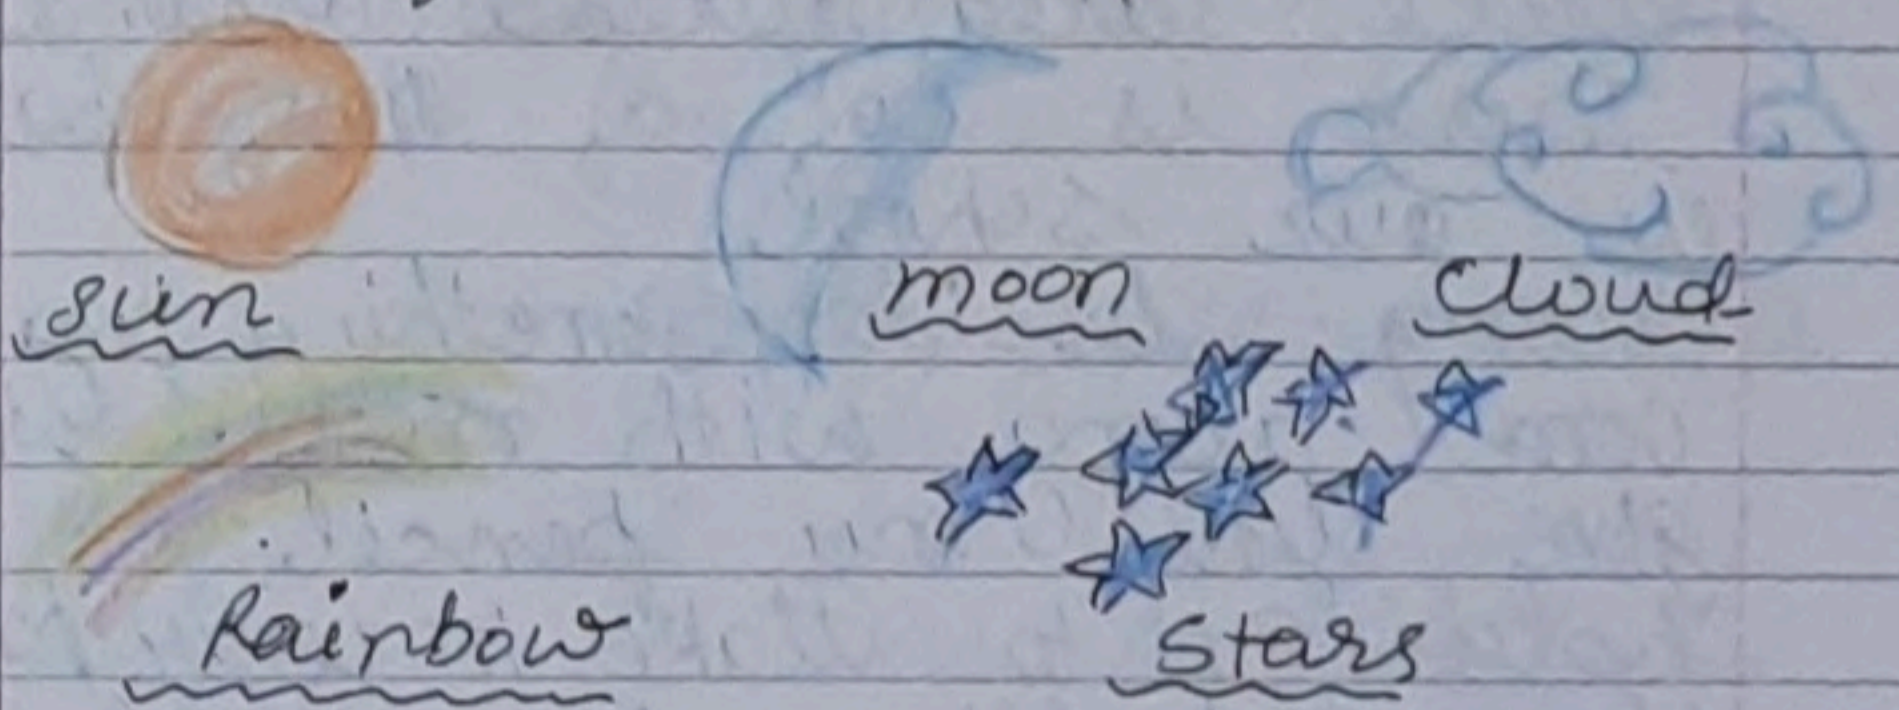 sun moon cloud
Rainbow stars